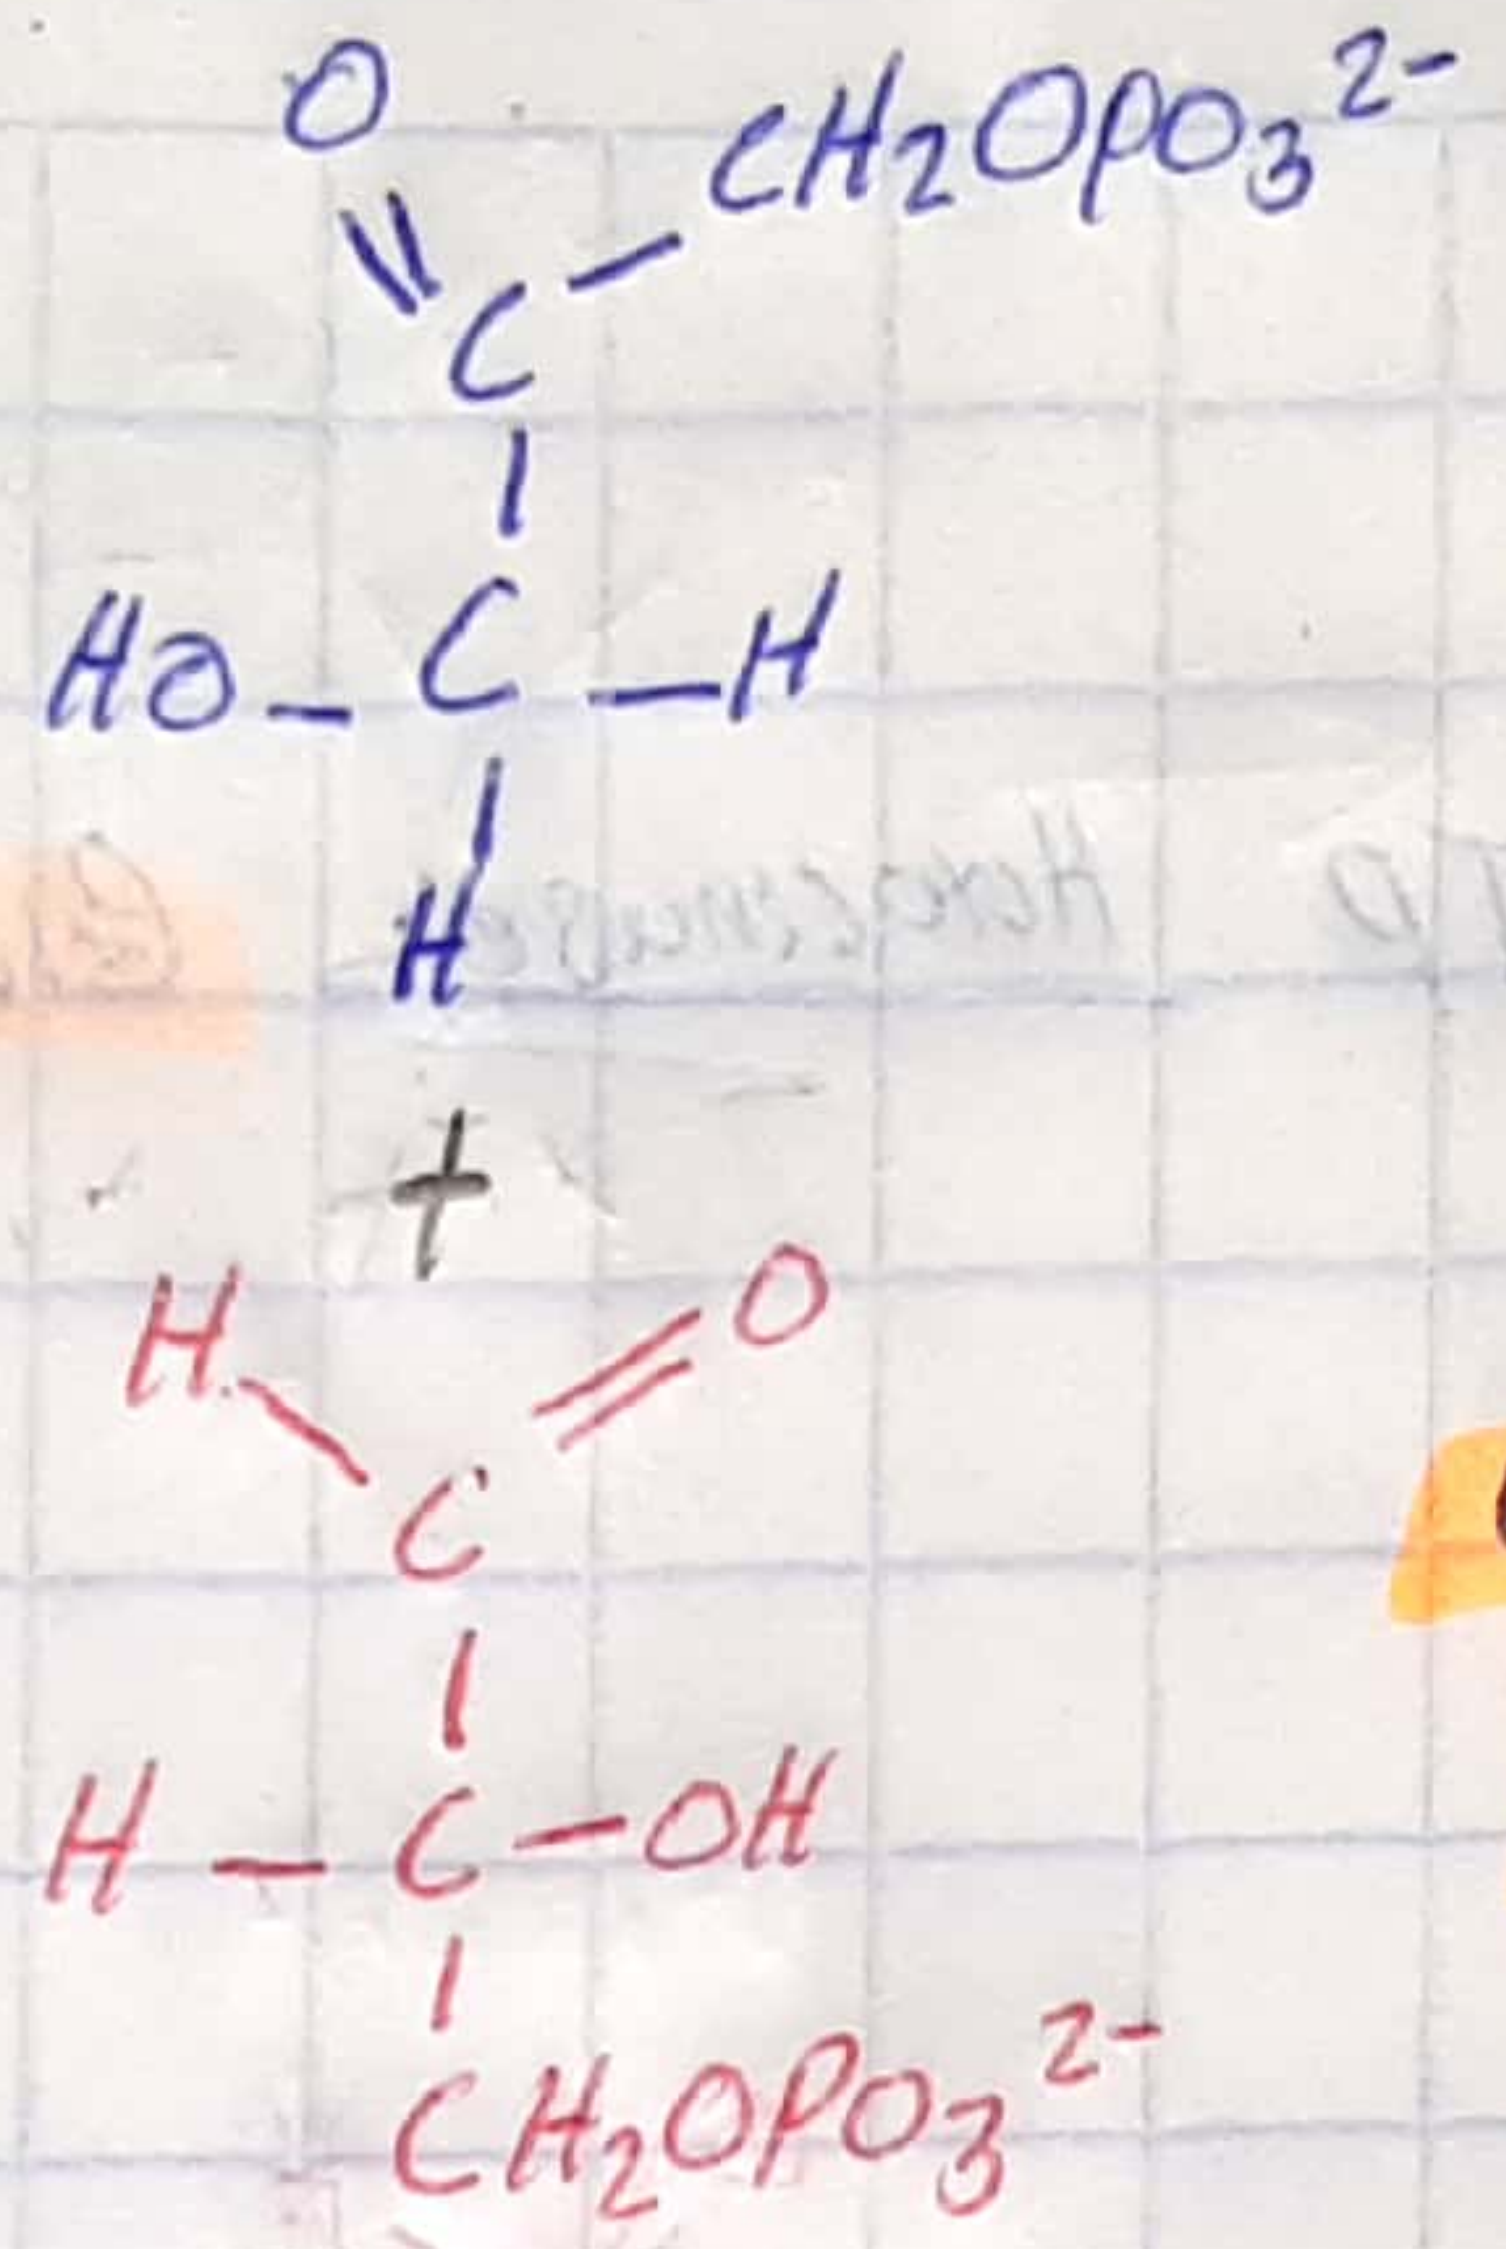 O
CH₂OPO₃²⁻
C
HO - C - H
H
+
H
O
C
H - C - OH
CH₂OPO₃²⁻